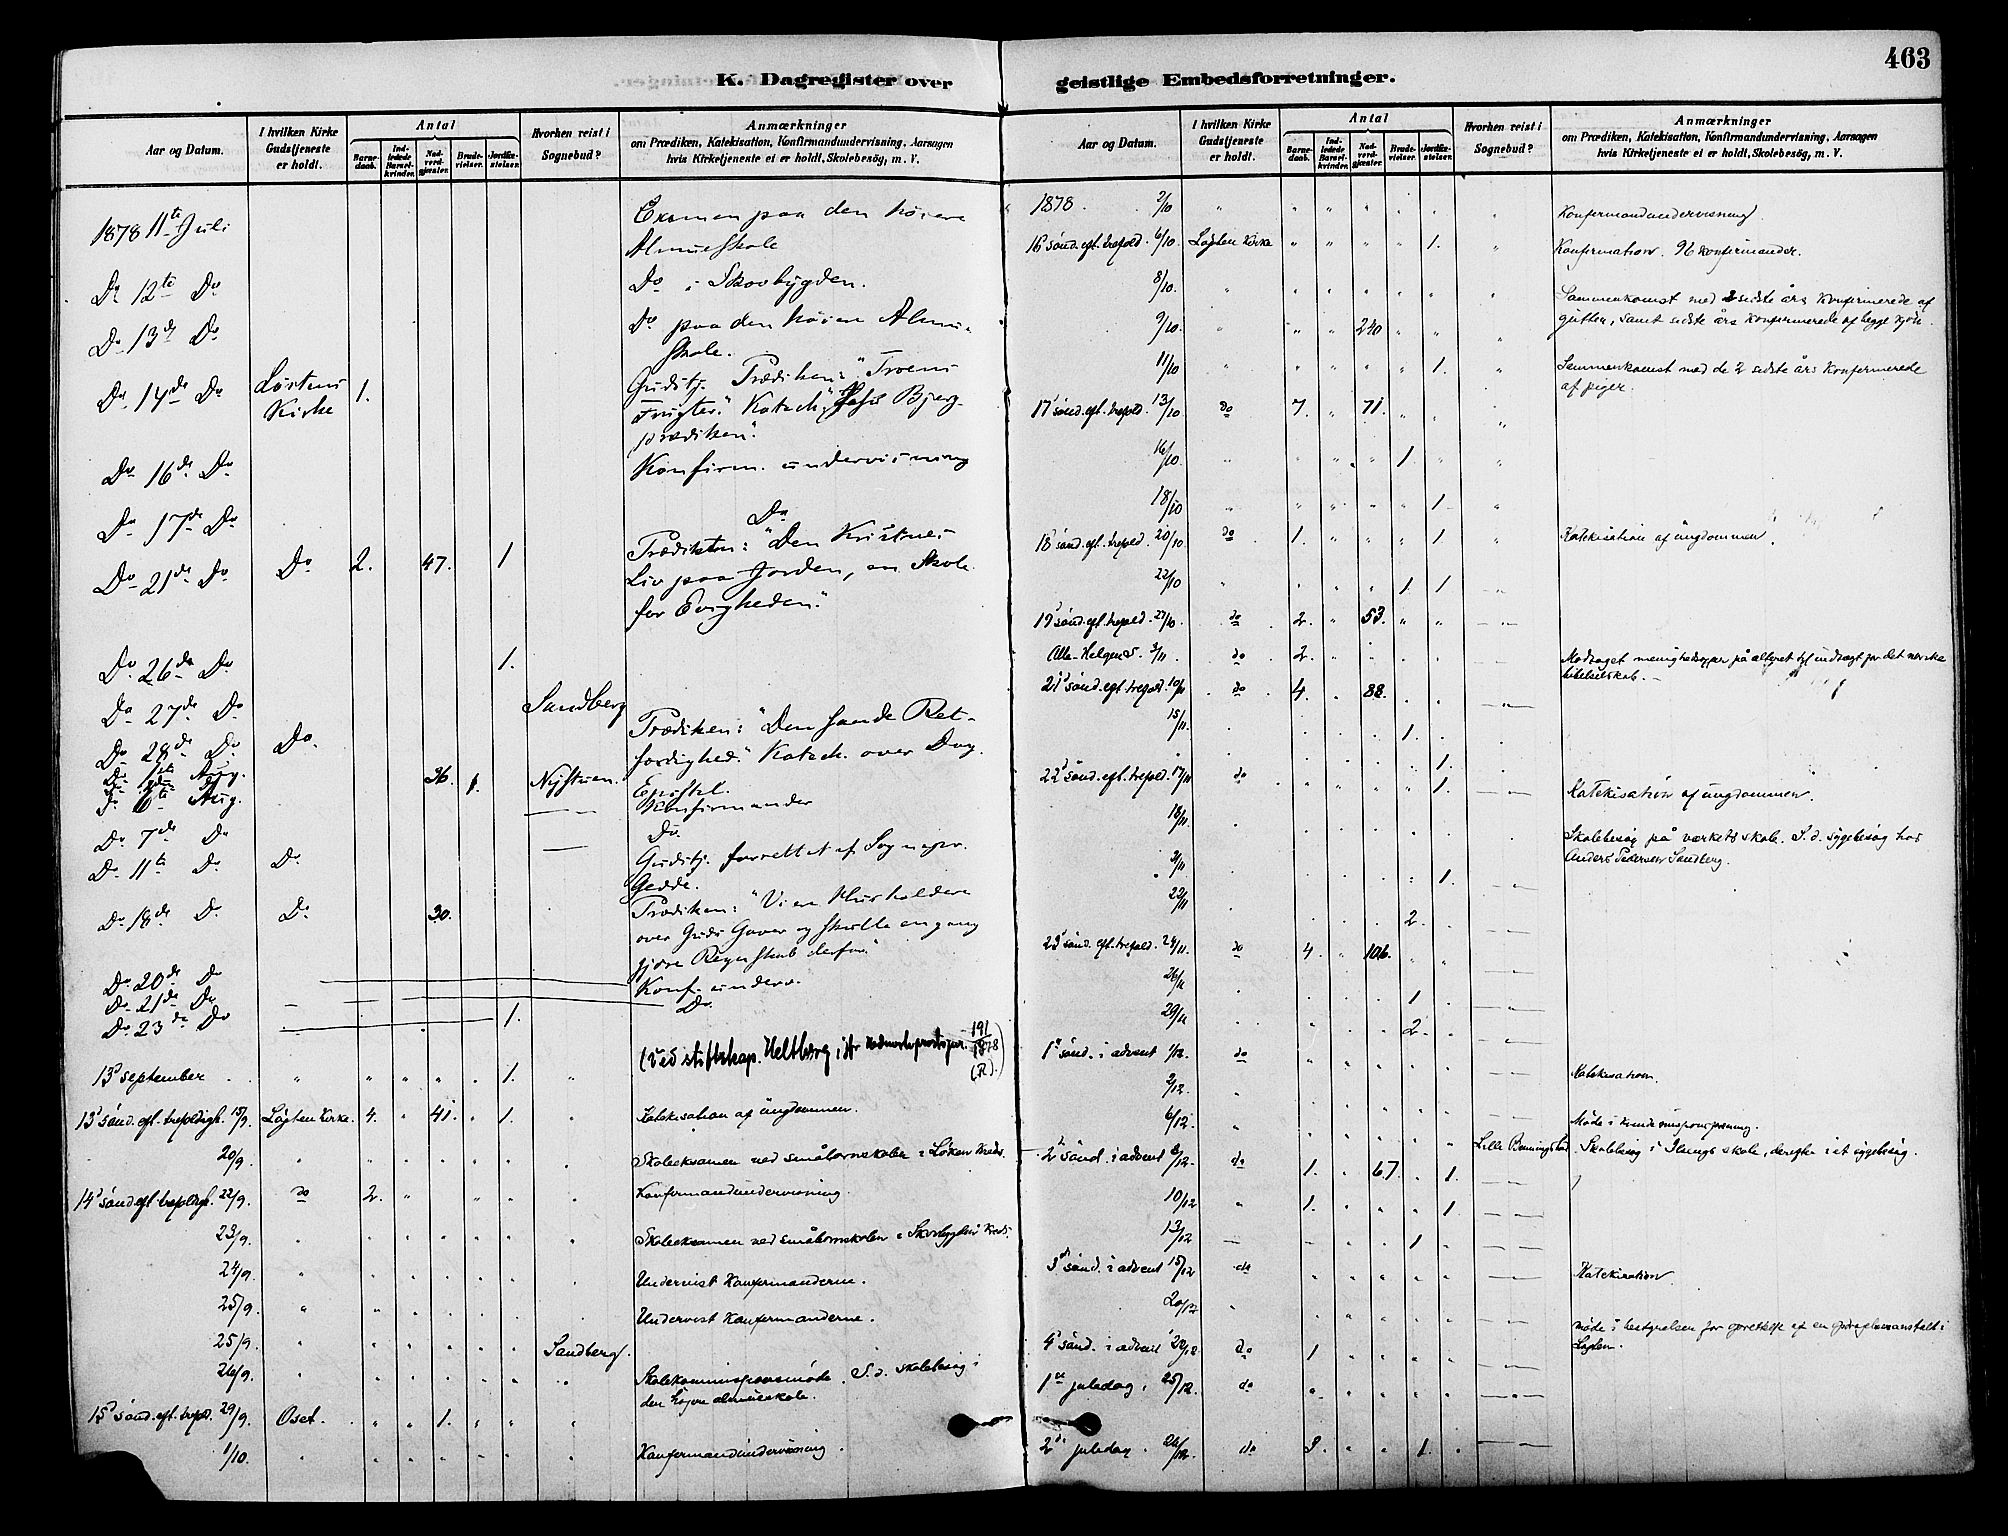 463
K. Dagregister over geistlige Embedsforretninger.
Aar og Datum.
I hvilken Kirke Gudstjeneste er holdt.
Antal
Barnedaab.
Indledede Barselkvinder.
Nadverdgjæster.
Brudevielser.
Jordfæstelser.
Hvorhen reist i Sognebud?
Anmærkninger
om Prædiken, Katekisation, Konfirmandundervisning, Aarsagen
hvis Kirketjeneste ei er holdt, Skolebesög, m. V.
1878 11te Juli Examen paa den høiere
Almueskole
Do 12te Do Do i Skovbygden.
Do 13de Do Do paa den høiere Almue-
skole.
Do 14de Do Løitens Kirke 1. Gudstj. Prædiken: "Troens
Frugter." Katech.
prædiken".
Do 16de Do Konfirm. undervisning
Do 17de Do Do
Do 21de Do Do 2. 47. 1 Prædiken: "Den Kristnes
Liv paa Jorden, en Skole
for Evigheden."
Do 26de Do 1.
Do 27de Do Sandberg
Do 28de Do Do. Prædiken: "Den sande Ret-
færdighed." Katech. over Dag.
Epistel.
Do 1ste Aug. 36. 1. Nystuen.
Do 6te Aug. Konfirmander
Do 7de Do Do.
Do 11te Do Do Gudstj. forrettet af Sognepr.
Gedde.
Do 18de Do Do 30. Prædiken: "Vi ere Husholdere
over Guds Gaver og skulle engang
gjøre Regnskab derfor."
Do 20de Do Konf. underv.
Do 21de Do Do.
Do 23de Do 1.
(Ved stiftskap. Heltberg 191/1878
(R).)
13d september " " " " " 1. "
13d sønd. eft. trefoldigh. 15/9 Løgten Kirke. 4. " 41. " 1. " Katekisation af ungdommen.
20/9. Skoleeksamen ved småbørnskolen i Løken Kreds.
14d sønd eft trefoldigh. 22/9. do 2. Konfirmandundervisning.
23/9. Skoleeksamen ved småbørnskolen i Skovbygdens Kreds.
24/9. Undervist Konfirmanderne.
25/9. Undervist Konfirmanderne.
25/9. Sandberg.
26/9. Skolekommissionsmøde. S. d. skolebesøg i
den høiere almueskole.
15d sønd. eft. trefold. 29/9. Oset. 1.
1/10. Konfirmandundervisning.
Aar og Datum.
I hvilken Kirke Gudstjeneste er holdt.
Antal
Barnedaab.
Indledede Barselkvinder.
Nadverdgjæster.
Brudevielser.
Jordfæstelser.
Hvorhen reist i Sognebud?
Anmærkninger
om Prædiken, Katekisation, Konfirmandundervisning, Aarsagen
hvis Kirketjeneste ei er holdt, Skolebesög, m. V.
1878. 2/10 Konfirmandundervisning.
16d sønd. eft. trefold. 6/10. Løgten Kirke 1. Konfirmation. 96 Konfirmander.
8/10. Sammenkomst med 2 sidste års Konfirmerede af
9/10. 240 gutter, samt sidste års Konfirmerede af begge kjøn.
11/10 1. Sammenkomst med de 2 sidste års Konfirmerede
af piger.
17d sønd. eft. trefold. 13/10 do 7. 71.
16/10. 1.
18/10 1.
18d sønd. eft. trefold. 20/10 do 1. 1 Katekisation af ungdommen.
22/10 1 1
19d sønd. eft. trefold. 27/10 do 2. 53.
Alle-Helgens. 3/11. do 2. Modtaget på alteret til indtægt for det norske
bibelselskab.
21d sønd. eft trefold. 10/11 do 4. 88.
15/11. 1.
1.
22d sønd. eft trefold. 17/11 do 1. Katekisation af ungdommen.
18/11. Skolebesøg på værkets skole. S. d. sygebesøg hos
Anders Pedersen Sandberg.
21/11 1.
22/11 2.
23d sønd. eft. trefold. 24/11. do 4. 106.
26/11 1.
29/11 2.
1d sønd. i advent 1/12. do Katekisation.
2/12.
6/12. Møde i
2d sønd. i advent 8/12. do 1. 67. 1. Skolebesøg i skole, derefter i et sygebesøg.
10/12 1. 1
13/12 1
3d sønd. i advent 15/12 do Katekisation.
20/12 møde i bestyrelsen for oprettelse af en
Løgten.
4d sønd. i advent 22/12 do 1
1ste juledag. 25/12. do
2den juledag. 26/12. do 3. 1.